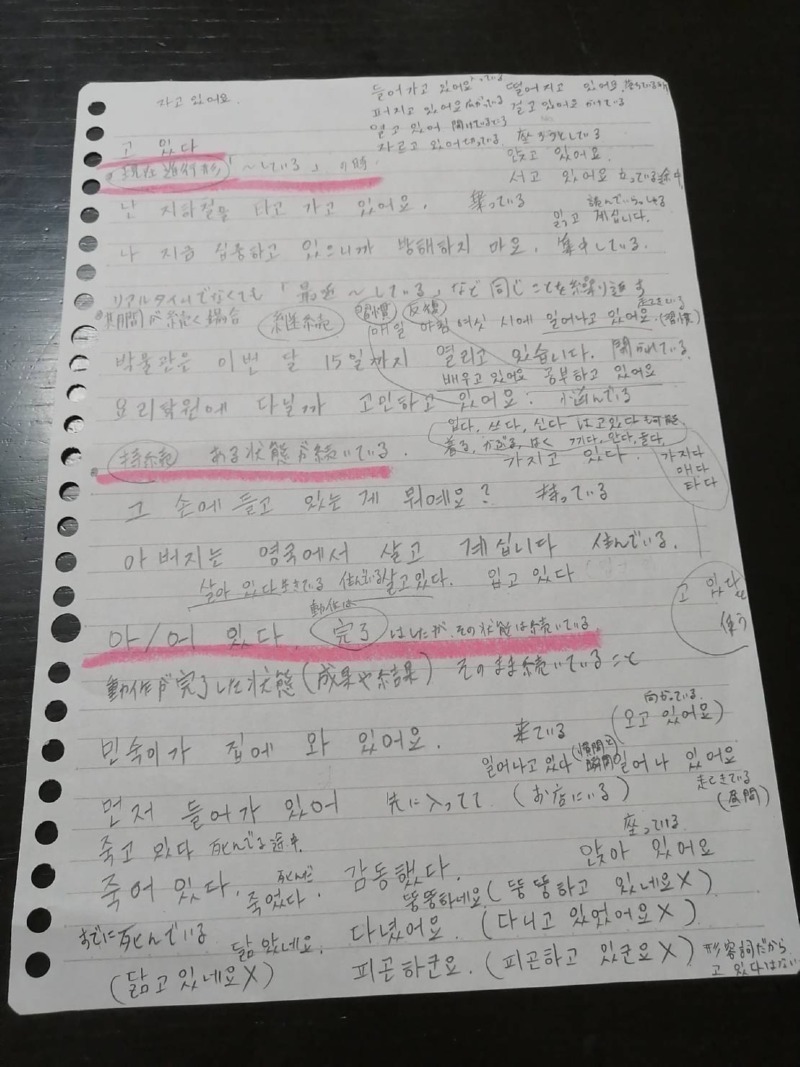 자고 있어요.
들어가고 있어요 떨어지고 있어요.
퍼지고 있어요 広がっている 걸고 있어요 かけている
열고 있어 開けている
자르고 있어 切っている 座ろうとしている
앉고 있어요.
고 있다
서고 있어요 立っている途中
現在進行形「~している」
난 지하철을 타고 가고 있어요. 乗っている
읽고 계십니다.
読んでいらっしゃる
나 지금 집중하고 있으니까 방해하지 마요. 集中している.
リアルタイムでなくても「最近~している」など同じことを繰り返す
*期間が続く場合 継続 習慣 反復
매일 아침 여섯 시에 일어나고 있어요. (習慣)
起きている
박물관은 이번 달 15일까지 열리고 있습니다. 開かれている.
배우고 있어요 공부하고 있어요
요리학원에 다닐까 고민하고 있어요. 悩んでいる
입다, 쓰다, 신다 は고 있다も可能
着る, かぶる, はく 끼다, 안다, 들다.
持続 ある状態が続いている. 가지고 있다.
가지다
매다
타다
그 손에 들고 있는 게 뭐예요? 持っている
아버지는 영국에서 살고 계십니다 住んでいる.
살아 있다 生きている 住んでいる 살고 있다. 입고 있다
고 있다を
使う
動作は
아/어 있다. 完了はしたが、その状態は続いている
動作が完了した状態(成果や結果) そのまま続いていること
민숙이가 집에 와 있어요. 来ている (오고 있어요)
向かっている.
일어나고 있다 일어나 있어요
起きている
(昼間)
먼저 들어가 있어 先に入ってて (お店にいる)
죽고 있다 死んでる途中.
座っている.
앉아 있어요
죽어 있다. 죽었다. 死んだ 감동했다.
뚱뚱하네요 (뚱뚱하고 있네요X)
すでに死んでいる
닮았네요. 다녔어요. (다니고 있었어요X)
(닮고 있네요X) 피곤하군요. (피곤하고 있군요X) 形容詞だから
고 있다はない